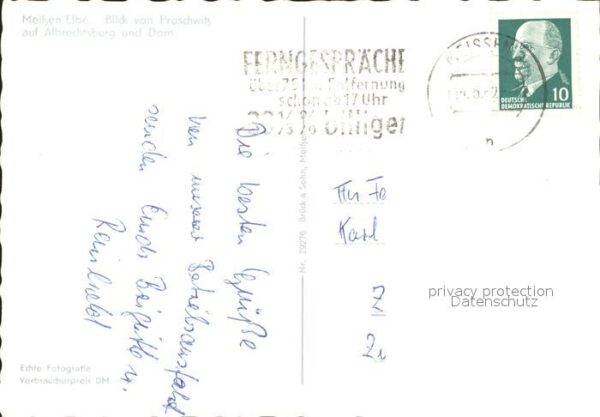 Meißen-Elbe. Blick von Proschwitz
auf Albrechtsburg und Dom
FERNGESPRÄCHE
über 75 km Entfernung
schon ab 17 Uhr
33⅓% billiger
MEISSEN
n
DEUTSCHE
DEMOKRATISCHE REPUBLIK
10
Die besten Grüße
von unserer Betriebsausfahrt
senden Euch Brigitte u.
Reinhold
Nr. 29276 Brück & Sohn, Meißen
Karl
privacy protection
Datenschutz
Echte Fotografie
Verbraucherpreis DM